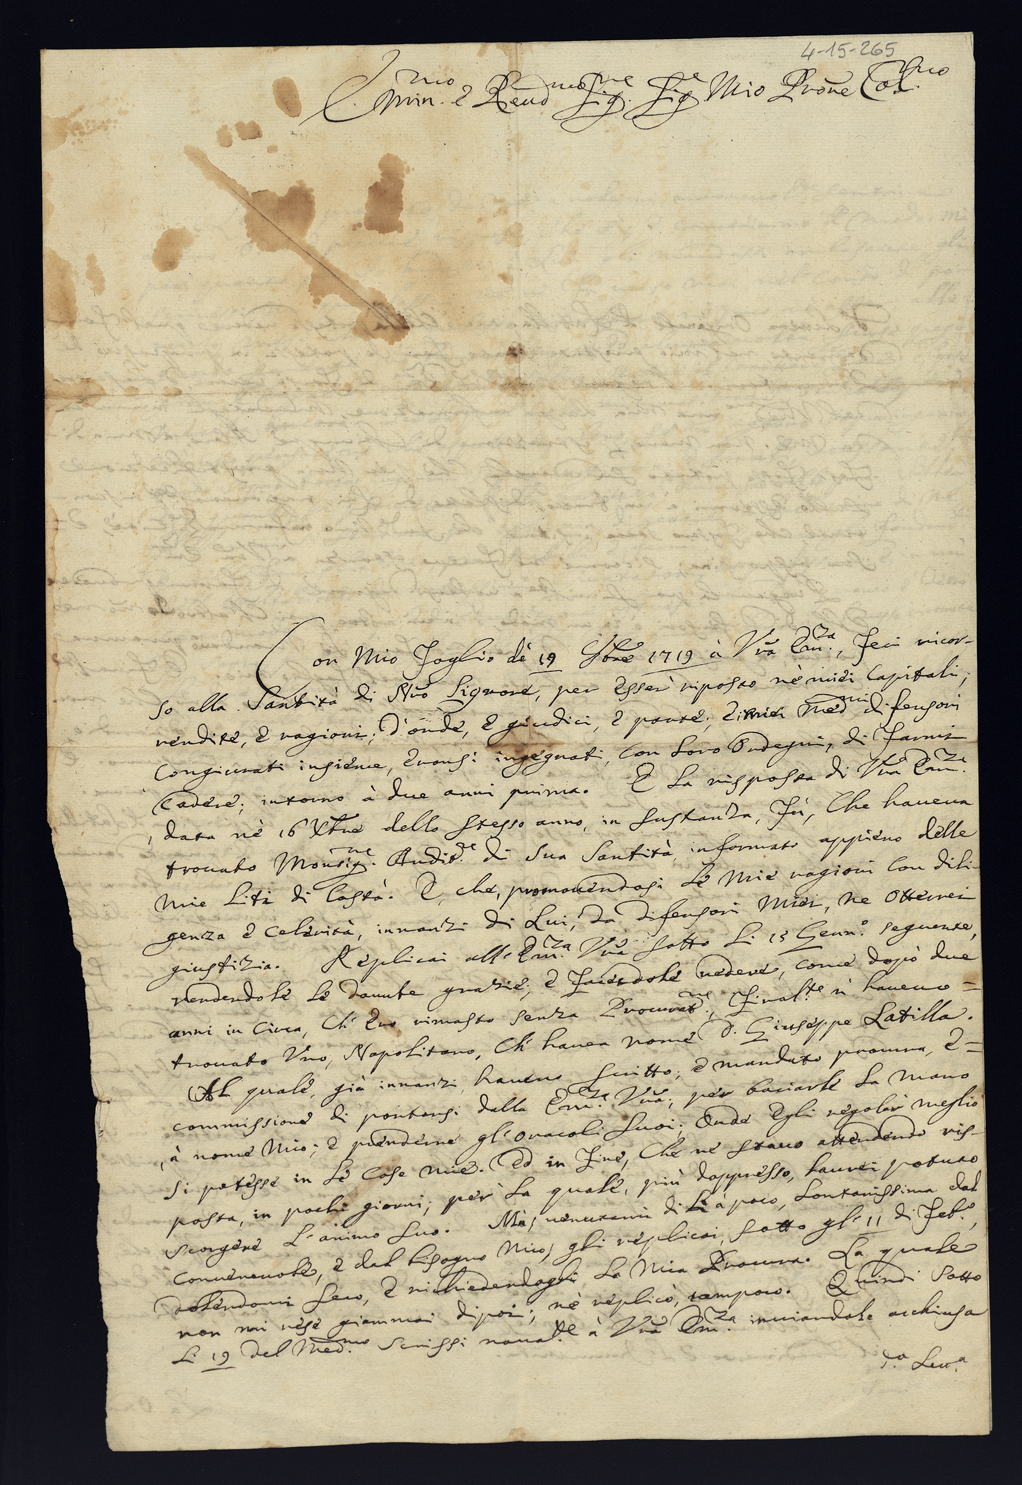 4-15-265
Emin.mo e Reud.mo Sig.re Sig.re Mio Prone Col.mo
Con Mio Foglio dè 19 Gbre 1719 à Vrā Em.za, Feci ricor-
so alla Santità di Nrō Signore, per esser riposto nè miei Capitali,
rendite, e ragioni; d'onde, e giudici, e parte, e i miei Med.mi difensori
congiurati insieme, eransi ingegnati, con Loro Ordegni, di Farmi
Cadere; intorno à due anni prima. E La risposta di Vrā Em.za
, data nè 16 Xbre dello stesso anno, in sustanza, Fù, Che haueua
trouato Monsig.re Audit.re di Sua Santità, informato appieno delle
mie Liti di Costà. E, che, promouendosi Le Mie ragioni con dili-
genza e Celerità, innanzi di Lui, da difensori Miei, ne Otterrei
giustizia. Replicai all'Em.za Vrā sotto Li 13 Genn.o seguente,
rendendole Le douute grazie, e Facendole uedere, come dopò due
anni in Circa, Ch'ero rimasto senza Procurat.re, Final.te n'haueuo =
trouato Vno, Napolitano, Ch'hauea nome D. Giuseppe Latilla.
Al quale, già innanzi, haueuo scritto; e mandato procura, e =
commissione di portarsi dalla Em.za Vrā; per baciarle La Mano
, à nome Mio; e prenderne gl'oracoli Suoi; Onde Egli regolar meglio
si potesse in Le Cose mie. Ed in Fine, Che ne stauo attendendo ris-
posta, in pochi giorni; per La quale, più dappresso, haurei potuto
scorgere L'animo Suo. Mà, uenutami di Lì à poco, Lontanissima dal
conueneuole, e dal bisogno Mio, gli replicai, sotto gl'11 di Feb.o,
dolendomi seco, e richiedendogli La Mia Procura. La quale
non mi rese giammai dipoi; nè replicò, tampoco. Quindi Sotto
Li 19 del Med.mo scrissi noua.te à Vrā Em.za inuiandole acchiusa